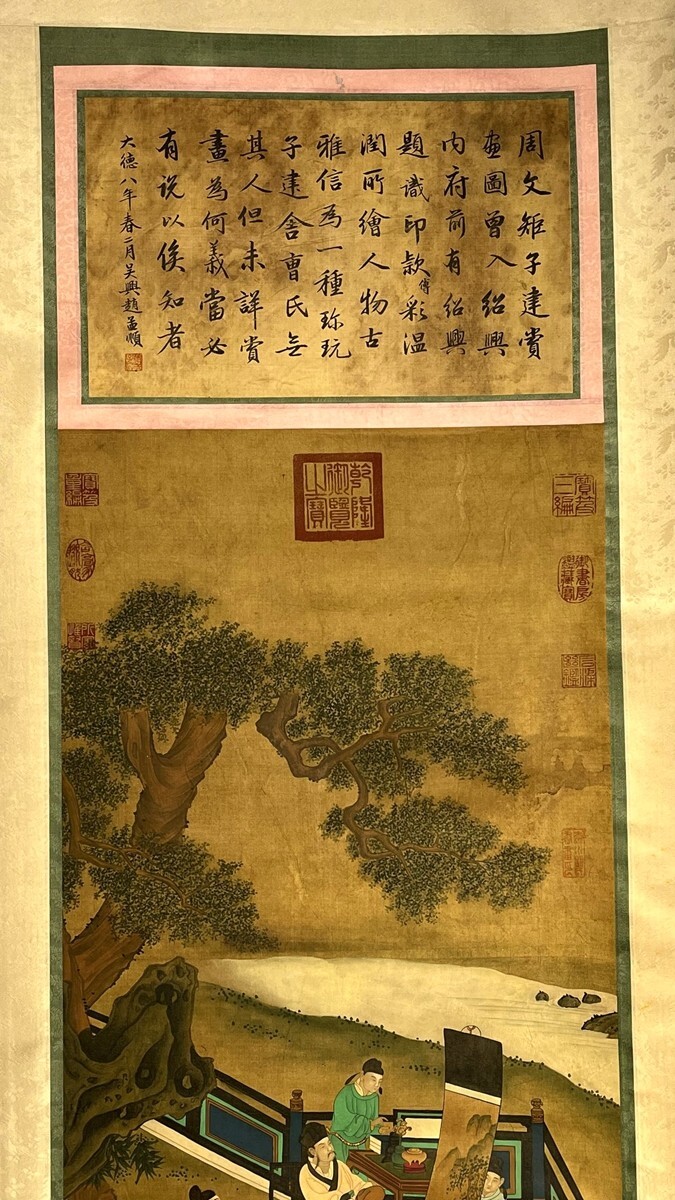 周文矩子建賞
畫圖曾入紹興
内府前有紹興
題識印款傅彩温
潤所繪人物古
雅信為一種珎玩
子建舍曹氏無
其人但未詳賞
畫為何義當必
有説以俟知者
大德八年春二月吴興趙孟頫
乾隆御覽之寶
寶笈三編